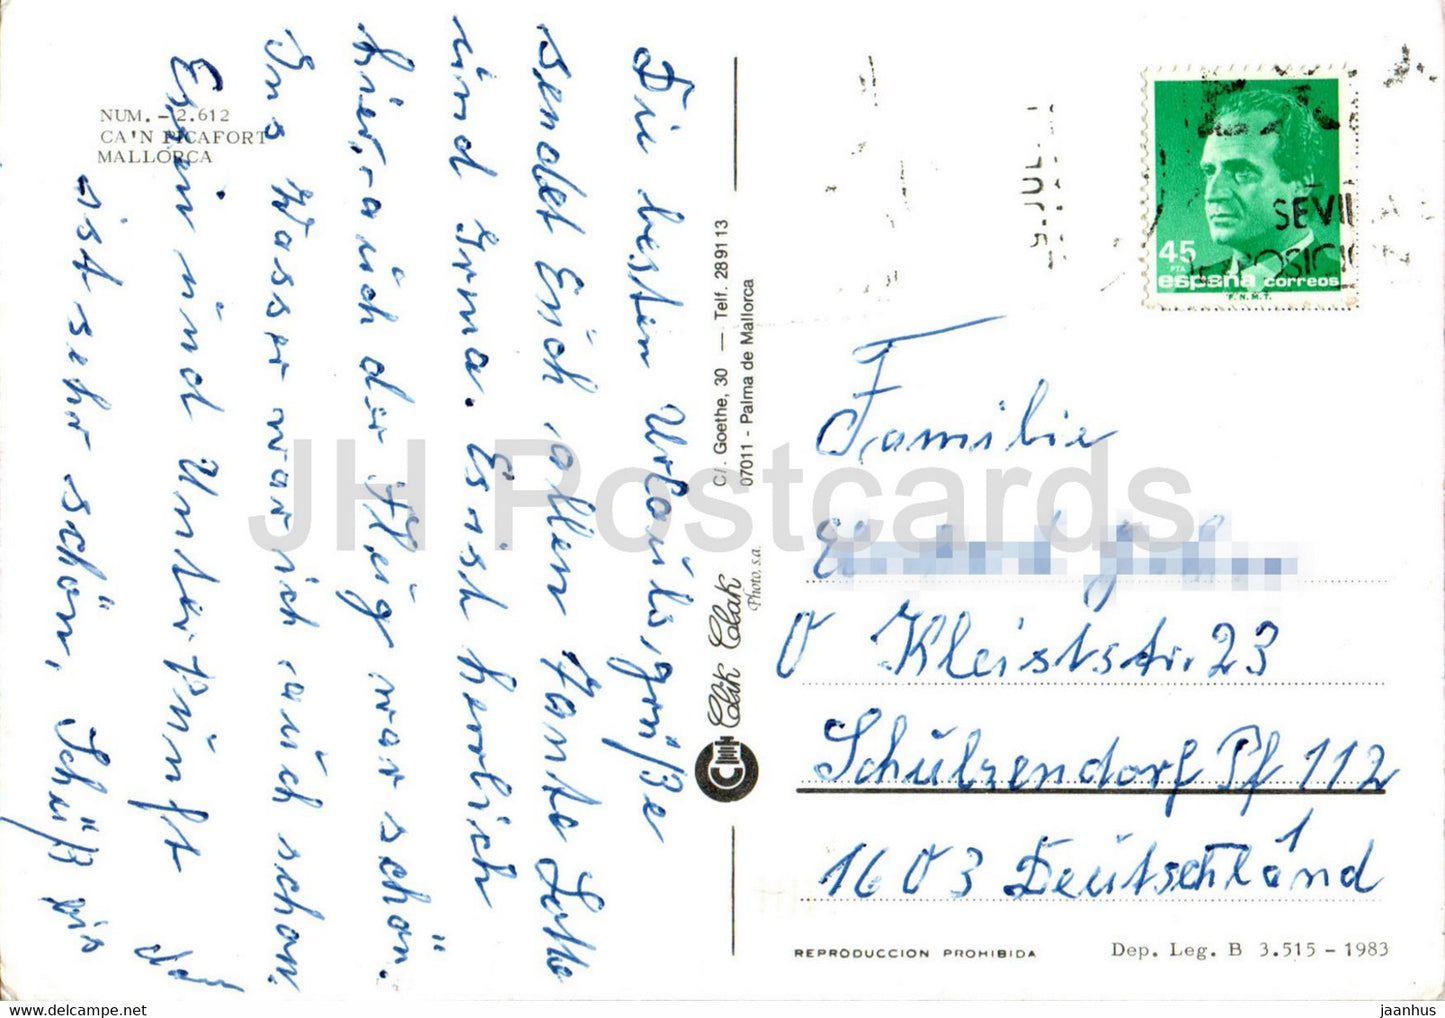 NUM. - 2.612
CA'N PICAFORT
MALLORCA
Die besten Urlaubsgrüße
sendet Euch allen Tante Lotte
und Irma. Es ist herrlich
hier, auch der Flug war schön.
Ins Wasser war ich auch schon.
Essen und Unterkunft
ist sehr schön.
C/. Goethe, 30 — Telf. 28 91 13
07011 - Palma de Mallorca
Clik Clak
Photo, s.a.
9 JUL.
SEVIL
45
PTA
españa correos
F.N.M.T.
Familie
O Kleiststr. 23
Schulzendorf Pf 112
1603 Deutschland
REPRODUCCION PROHIBIDA
Dep. Leg. B 3.515 - 1983
JH Postcards
www.hippostcard.com
jaanhus